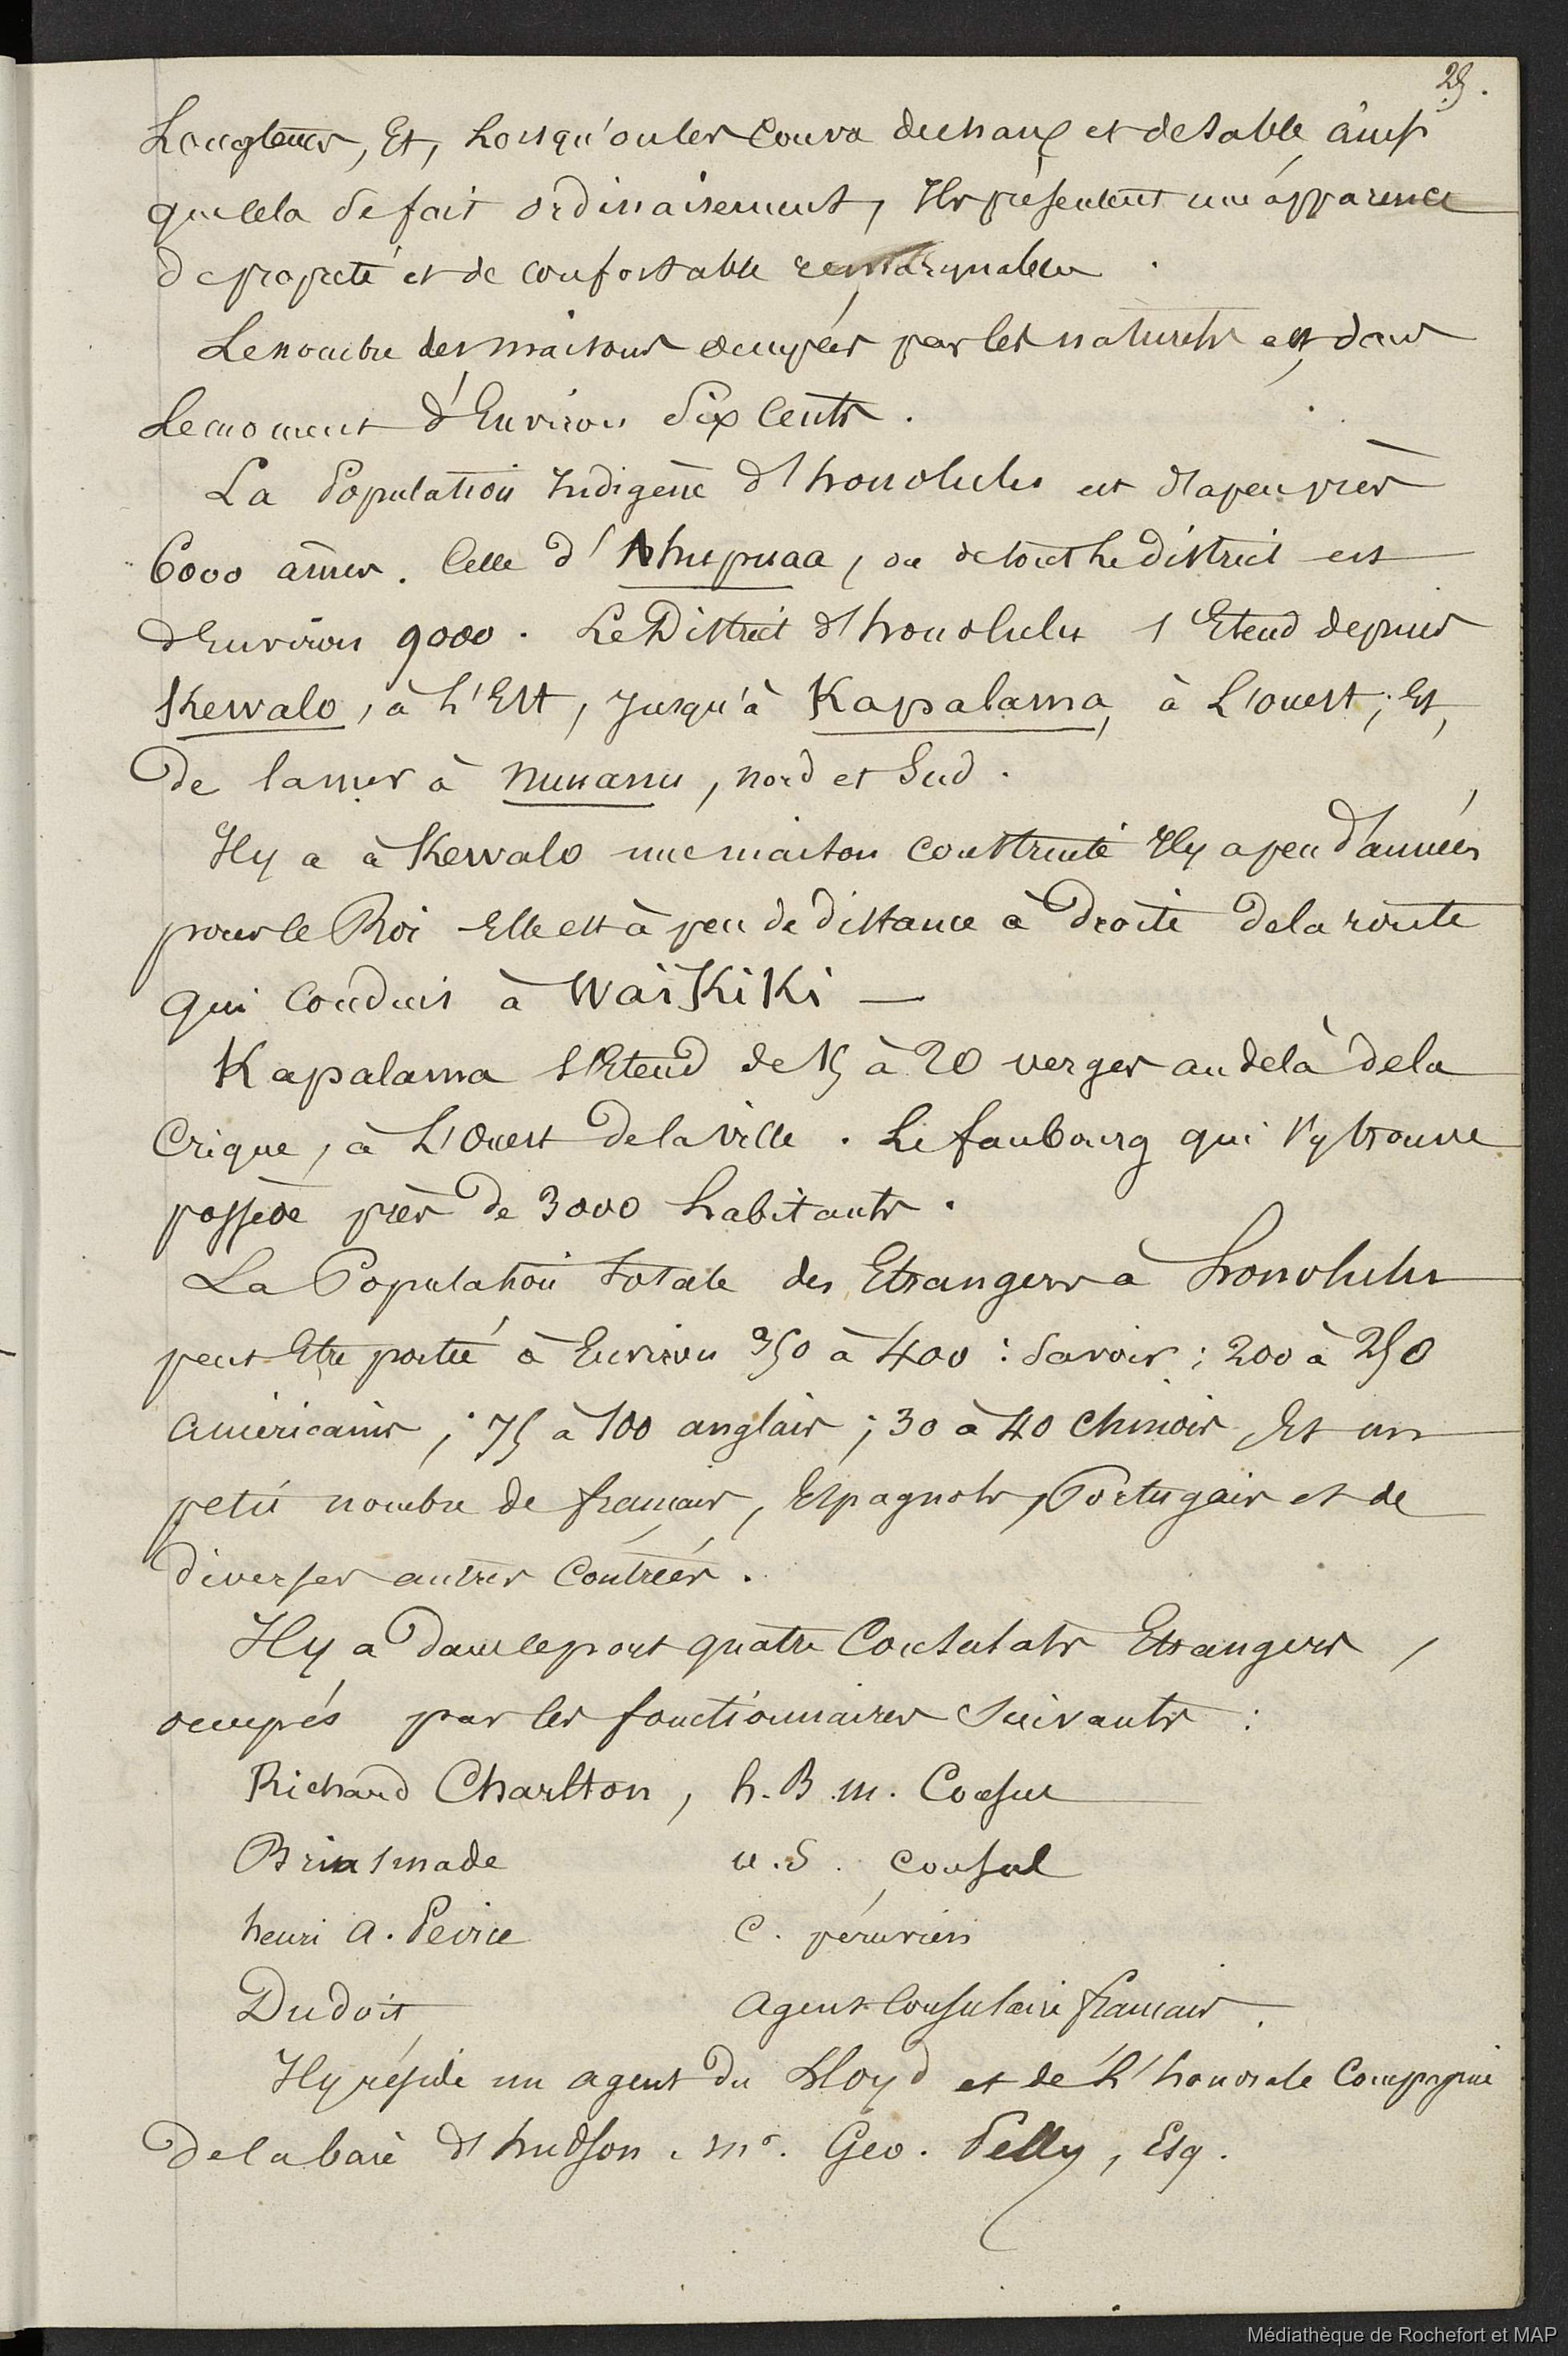 25.
Longtems, Et, Lorsqu'on les couvre de chaux et de sable, ainsi
que cela se fait ordinairement, Ils présentent une apparence
de propreté et de confortable remarquables.
Le nombre des maisons occupées par les naturels est, dans
Le moment d'Environ Six Cents.
La Population Indigène d'honolulu est d'apeu près
6000 âmes. Celle d'Ahupuaa, ou de tout Le district est
d'Environ 9000. Le District d'honolulu s'Etend depuis
Kewalo, à L'Est, Jusqu'à Kapalama, à L'ouest; Et,
De la mer à nuuanu, nord et Sud.
Il y a à Kewalo une maison construite Il y a peu d'années
pour le Roi Elle est à peu de distance à Droite de la route
qui Conduit à WaiKiKi —
Kapalama s'Etend de 15 à 20 verges au delà de la
Crique, à L'Ouest de la ville. Le faubourg qui s'y trouve
possède près de 3000 habitants.
La Population totale des Etrangers à honolulu
peut Etre portée à Environ 350 à 400 : Savoir : 200 à 250
américains ; 75 à 100 anglais ; 30 à 40 Chinois, Et un
petit nombre de français, Espagnols, Portugais et de
diverses autres Contrées.
Il y a Dans le port quatre Consulats Etrangers,
occupés par les fonctionnaires Suivants :
Richard Charlton, h. B. m. Consul
Brinsmade u. S. Consul
henri a. Peirce C. péruvien
Dudoit agent Consulaire francais.
Il y réside un agent du Lloyd et de L'honorable Compagnie
De la baie d'hudson. mr. Geo. Pelly, Esq.
Médiathèque de Rochefort et MAP